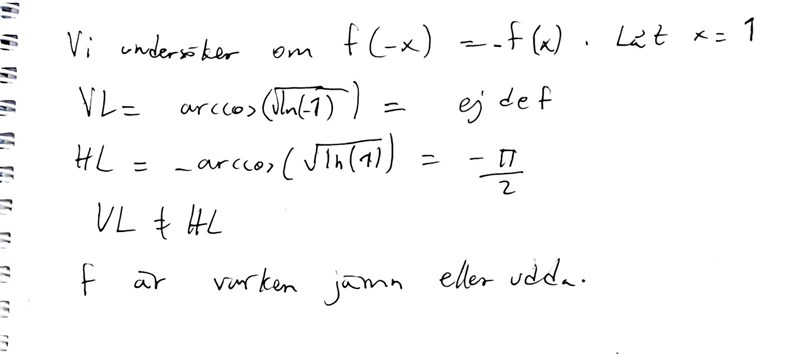 Vi undersöker om f(-x) = -f(x). Låt x = 1
VL = arccos(√ln(-1)) = ej def
HL = -arccos(√ln(1)) = -π/2
VL ≠ HL
f är varken jämn eller udda.